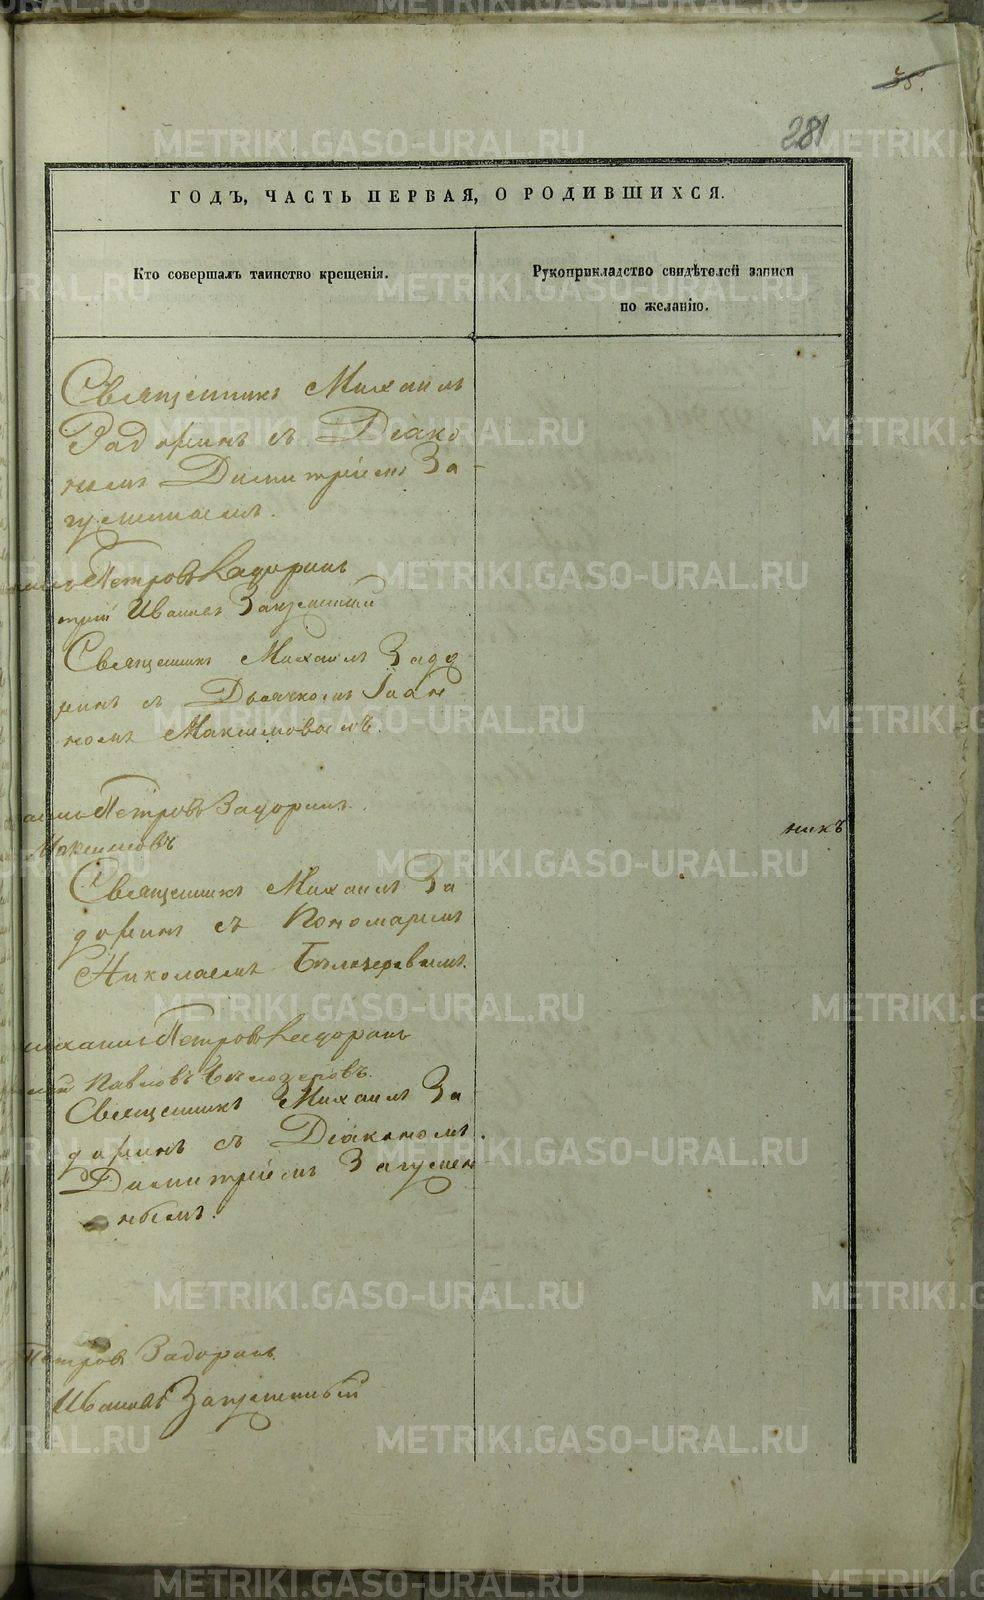 35.
281
ГОДЪ, ЧАСТЬ ПЕРВАЯ, О РОДИВШИХСЯ.
Кто совершалъ таинство крещенія.
Рукоприкладство свидѣтелей записи
по желанію.
Священникъ Михаилъ
Задоринъ съ Діако
номъ Димитріемъ За
гуменнымъ.
Петровъ Задоринъ
трій Ивановъ Загуменный
Священникъ Михаилъ Задо
ринъ съ Дьячкомъ Іан
номъ Максимовымъ.
Петровъ Задоринъ.
Максимовъ
никъ
Священникъ Михаилъ За
доринъ съ Пономаремъ
Николаемъ Бѣлозеровымъ.
Михаилъ Петровъ Задоринъ
лай Павловъ Бѣлозеровъ.
Священникъ Михаилъ За
доринъ съ Діакономъ
Димитріемъ Загумен
нымъ.
Петровъ Задоринъ.
Ивановъ Загуменный
METRIKI.GASO-URAL.RU